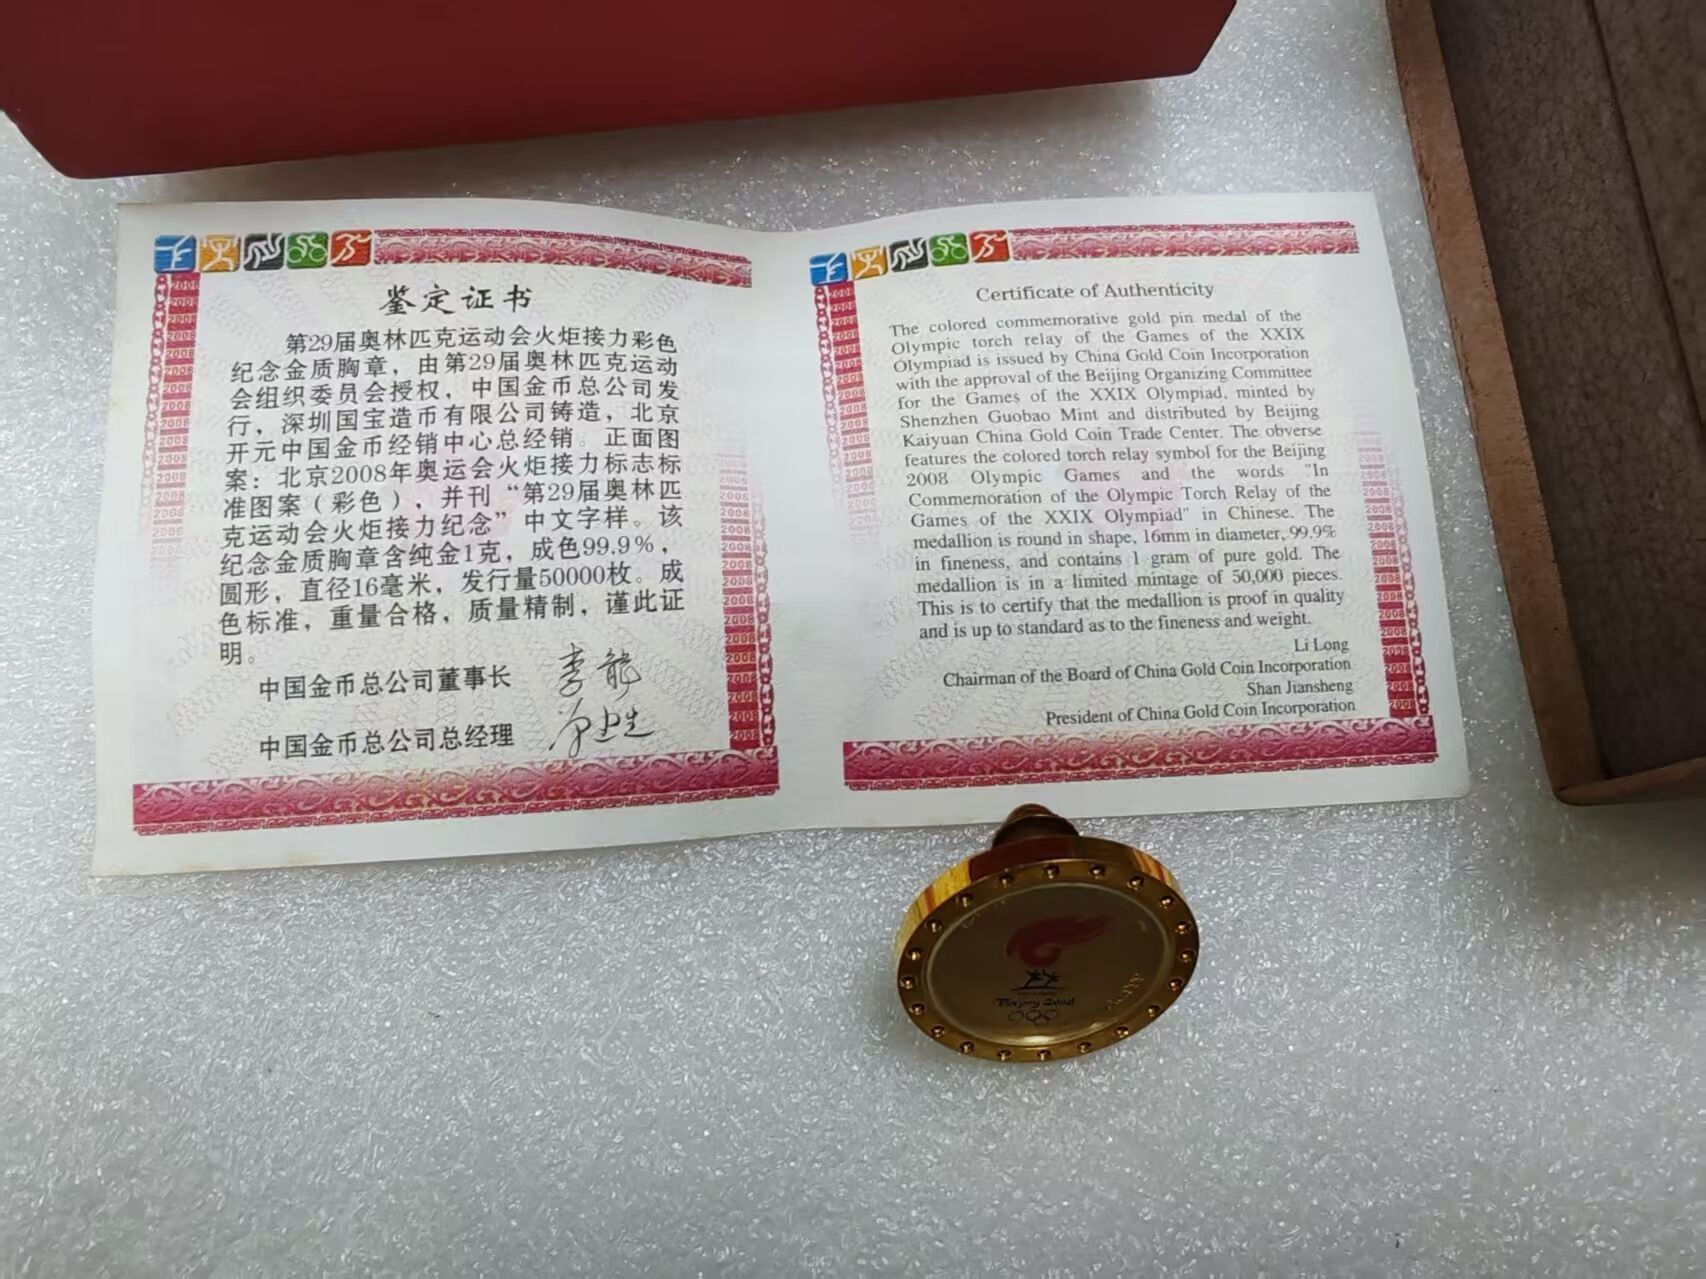 鉴定证书
第29届奥林匹克运动会火炬接力彩色
纪念金质胸章，由第29届奥林匹克运动
会组织委员会授权，中国金币总公司发
行，深圳国宝造币有限公司铸造，北京
开元中国金币经销中心总经销。正面图
案：北京2008年奥运会火炬接力标志标
准图案（彩色），并刊“第29届奥林匹
克运动会火炬接力纪念”中文字样。该
纪念金质胸章含纯金1克，成色99.9%，
圆形，直径16毫米，发行量50000枚。成
色标准，重量合格，质量精制，谨此证
明。
中国金币总公司董事长
中国金币总公司总经理
Certificate of Authenticity
The colored commemorative gold pin medal of the
Olympic torch relay of the Games of the XXIX
Olympiad is issued by China Gold Coin Incorporation
with the approval of the Beijing Organizing Committee
for the Games of the XXIX Olympiad, minted by
Shenzhen Guobao Mint and distributed by Beijing
Kaiyuan China Gold Coin Trade Center. The obverse
features the colored torch relay symbol for the Beijing
2008 Olympic Games and the words "In
Commemoration of the Olympic Torch Relay of the
Games of the XXIX Olympiad" in Chinese. The
medallion is round in shape, 16mm in diameter, 99.9%
in fineness, and contains 1 gram of pure gold. The
medallion is in a limited mintage of 50,000 pieces.
This is to certify that the medallion is proof in quality
and is up to standard as to the fineness and weight.
Li Long
Chairman of the Board of China Gold Coin Incorporation
Shan Jiansheng
President of China Gold Coin Incorporation
Beijing 2008